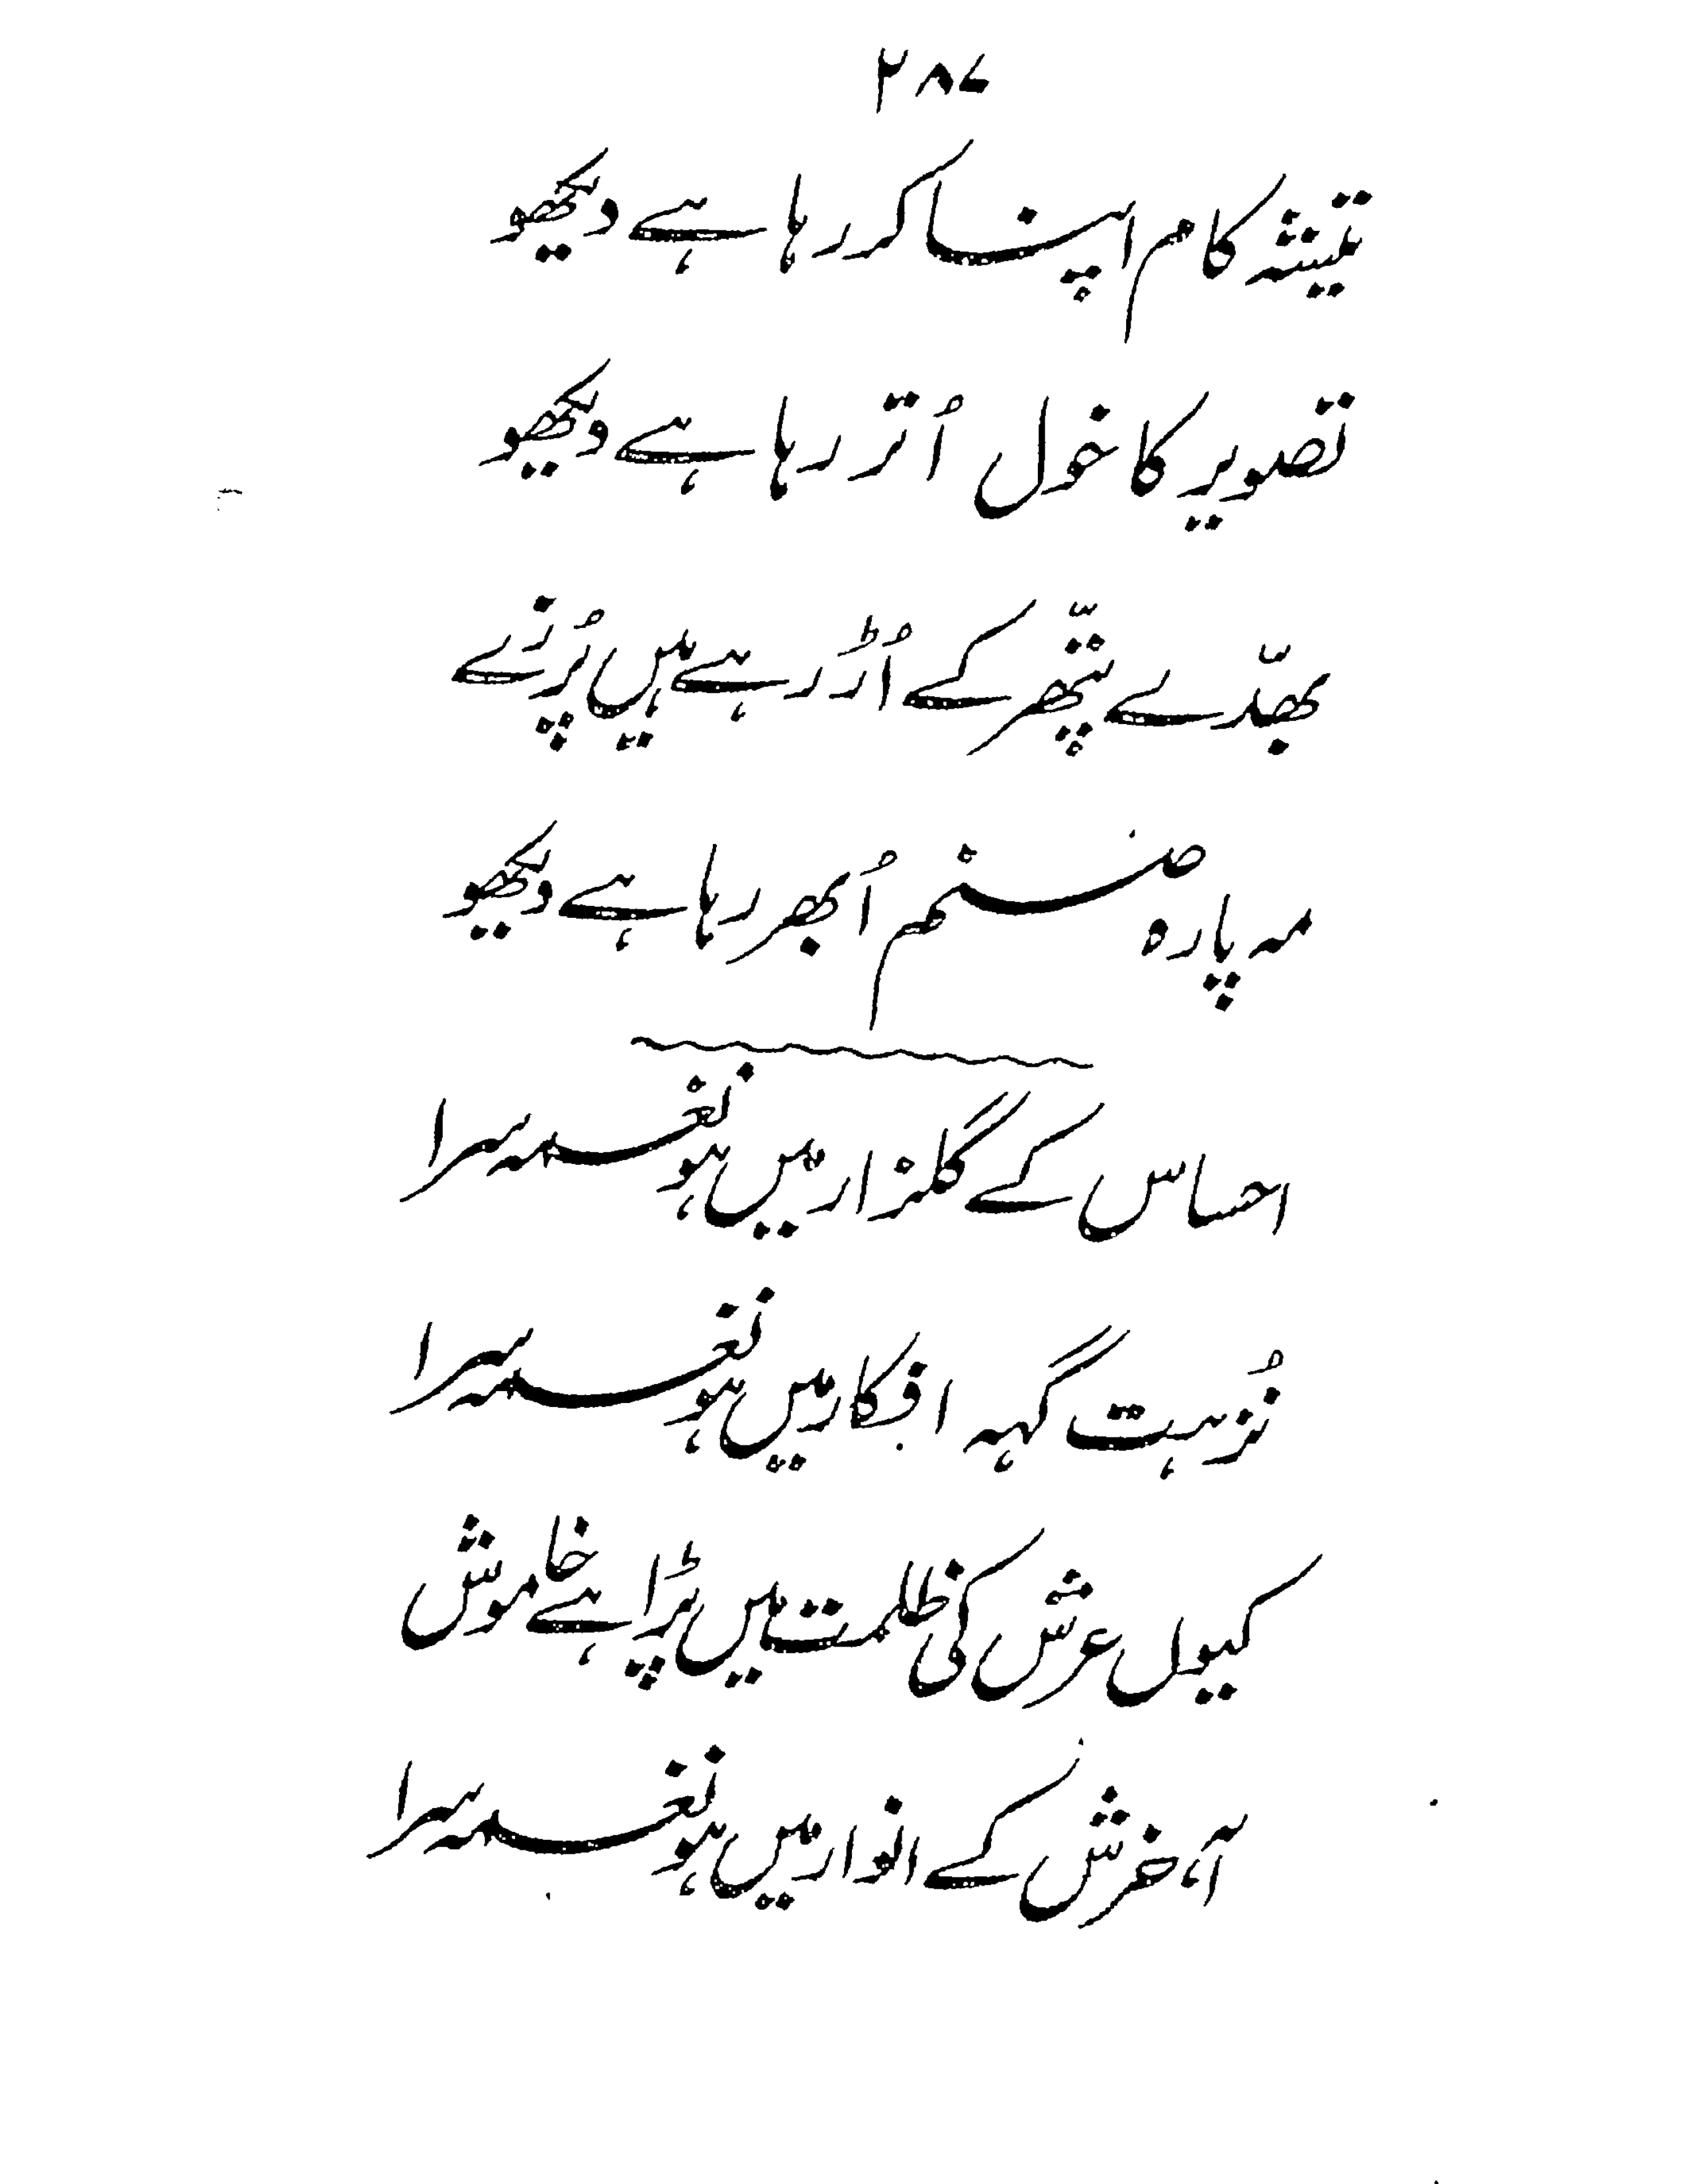 ۲۸۷
تیشہ کام اپنا کر رہا ہے دیکھو
تصویر کا خول اُتر رہا ہے دیکھو
بھدّے پتّھر کے اُڑ رہے ہیں پُرزے
مہ پارہ صنم اُبھر رہا ہے دیکھو
احساس کے گلزار میں ہو نغمہ سرا
نُزہت گہہ افکار میں ہو نغمہ سرا
کیوں عرش کی ظلمت میں پڑا ہے خاموش
آ، فرش کے انوار میں ہو نغمہ سرا